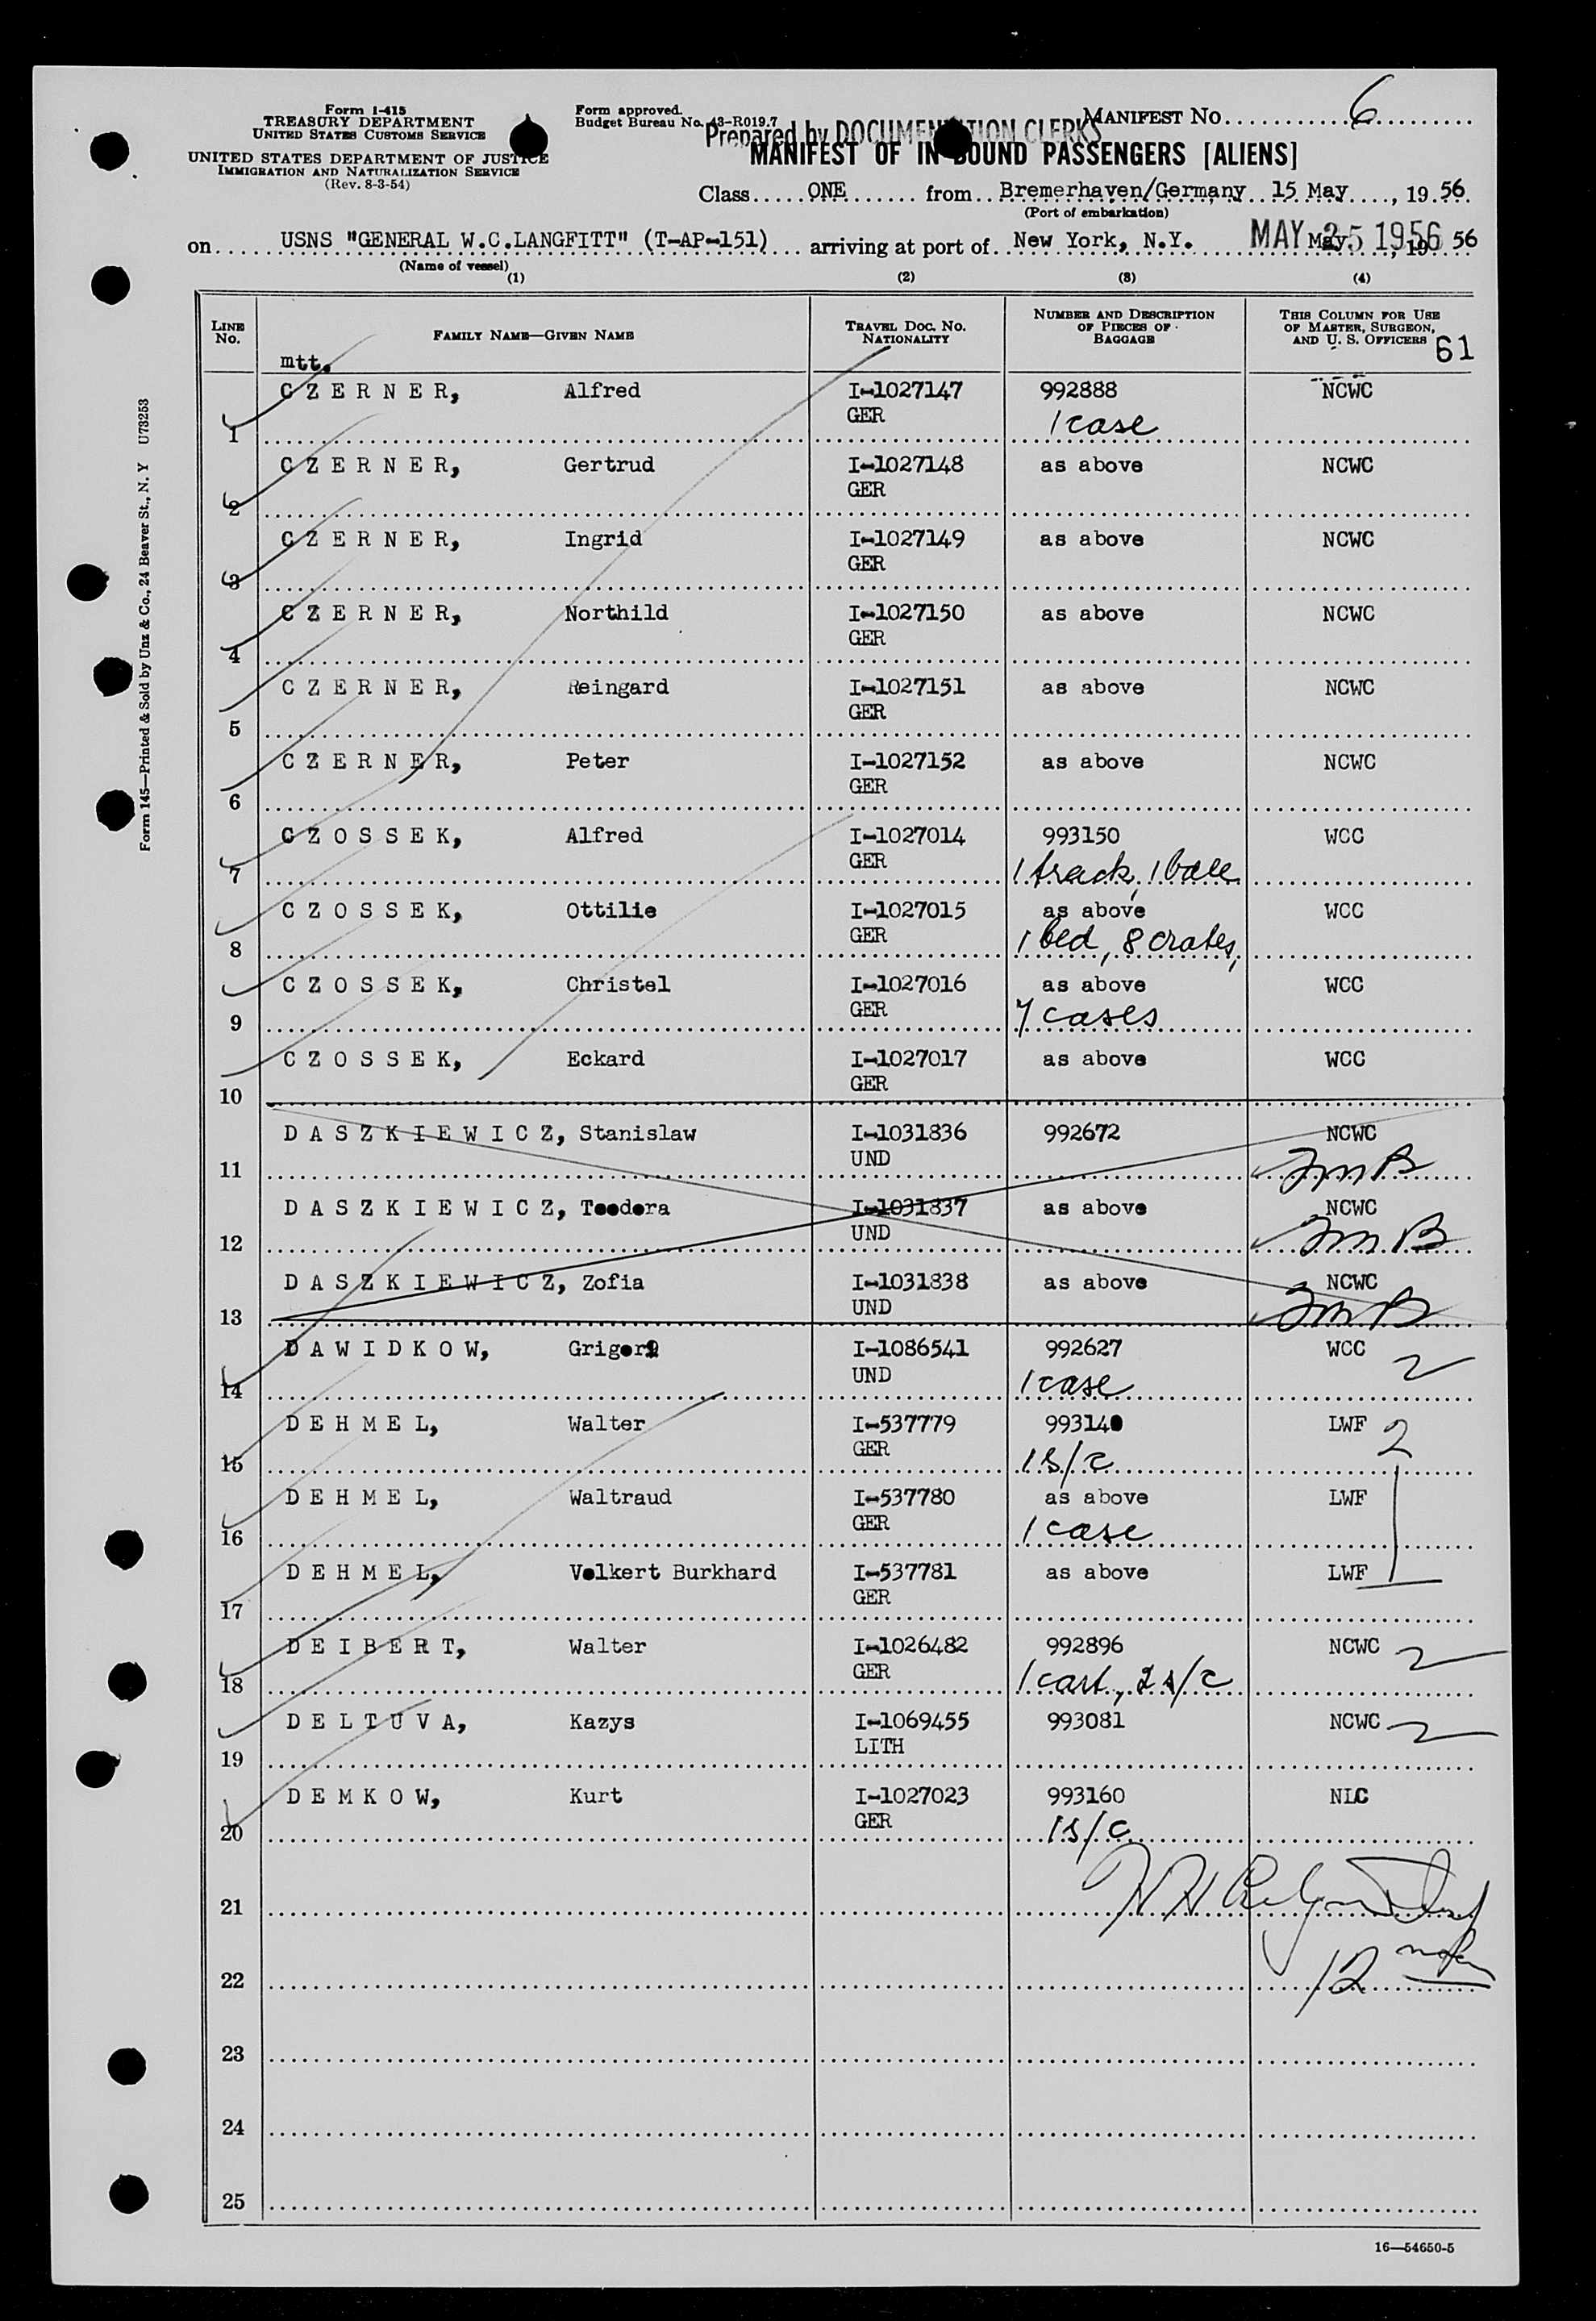 Form I-415
TREASURY DEPARTMENT
UNITED STATES CUSTOMS SERVICE
UNITED STATES DEPARTMENT OF JUSTICE
IMMIGRATION AND NATURALIZATION SERVICE
(Rev. 8-3-54)
Form approved.
Budget Bureau No. 43-R019.7
Prepared by DOCUMENTATION CLERKS
MANIFEST NO. 6
MANIFEST OF IN-BOUND PASSENGERS [ALIENS]
Class ONE from Bremerhaven/Germany 15 May, 19 56
(Port of embarkation)
on USNS "GENERAL W.C.LANGFITT" (T-AP-151) arriving at port of New York, N.Y. May, 19 56
MAY 25 1956
(Name of vessel)
(1) (2) (3) (4)
LINE NO.
FAMILY NAME—GIVEN NAME
TRAVEL DOC. NO. NATIONALITY
NUMBER AND DESCRIPTION OF PIECES OF BAGGAGE
THIS COLUMN FOR USE OF MASTER, SURGEON, AND U. S. OFFICERS
61
mtt.
1 CZERNER, Alfred I-1027147 992888 NCWC
GER 1 case
2 CZERNER, Gertrud I-1027148 as above NCWC
GER
3 CZERNER, Ingrid I-1027149 as above NCWC
GER
4 CZERNER, Northild I-1027150 as above NCWC
GER
5 CZERNER, Reingard I-1027151 as above NCWC
GER
6 CZERNER, Peter I-1027152 as above NCWC
GER
7 CZOSSEK, Alfred I-1027014 993150 WCC
GER 1 1 bale
8 CZOSSEK, Ottilie I-1027015 as above WCC
GER 1 bed, 8 crates,
9 CZOSSEK, Christel I-1027016 as above WCC
GER 7 cases
10 CZOSSEK, Eckard I-1027017 as above WCC
GER
11 DASZKIEWICZ, Stanislaw I-1031836 992672 NCWC
UND
12 DASZKIEWICZ, Teodora I-1031837 as above NCWC
UND
13 DASZKIEWICZ, Zofia I-1031838 as above NCWC
UND
14 DAWIDKOW, I-1086541 992627 WCC 2
UND 1 case
15 DEHMEL, Walter I-537779 993140 LWF 2
GER 1 s/c
16 DEHMEL, Waltraud I-537780 as above LWF
GER 1 case
17 DEHMEL, Volkert Burkhard I-537781 as above LWF
GER
18 DEIBERT, Walter I-1026482 992896 NCWC 2
GER 1 cart., 2 s/c
19 DELTUVA, Kazys I-1069455 993081 NCWC 2
LITH
20 DEMKOW, Kurt I-1027023 993160 NLC
GER 1 s/c
21
22 12
23
24
25
16—54650-5
Form 145—Printed & Sold by Unz & Co., 24 Beaver St., N. Y U73253